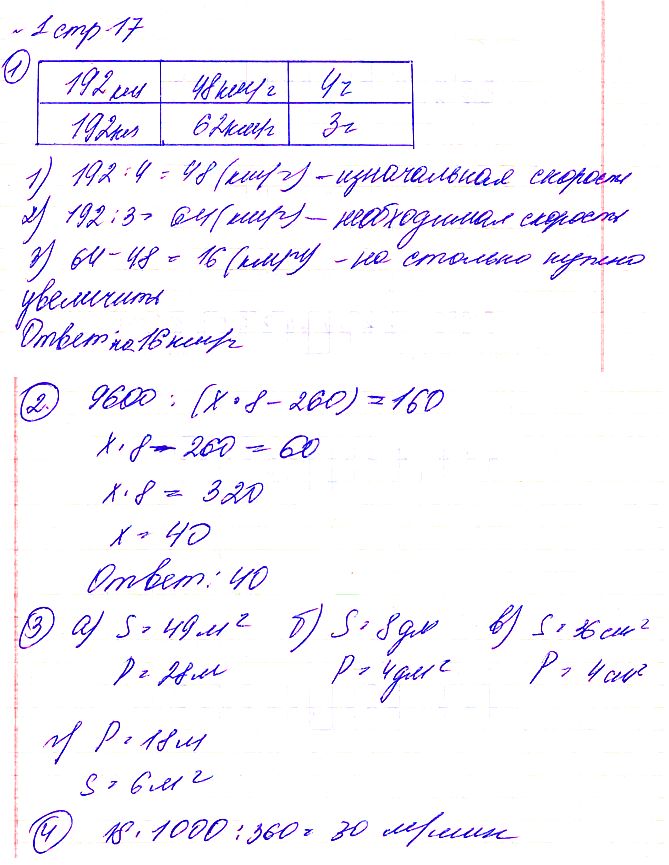 № 1 стр 17
1 192 км 48 км/ч 4 ч
192 км 62 км/ч 3 ч
1) 192 : 4 = 48 (км/ч) – изначальная скорость
2) 192 : 3 = 64 (км/ч) – необходимая скорость
3) 64 – 48 = 16 (км/ч) – на столько нужно
увеличить
Ответ: на 16 км/ч
2. 9600 : (x · 8 – 260) = 160
x · 8 – 260 = 60
x · 8 = 320
x = 40
Ответ: 40
3 а) S = 49 м² б) S = 8 дм в) S = 36 см²
P = 28 м P = 4 дм² P = 4 см²
г) P = 18 м
S = 6 м²
4 18 · 1000 : 360 = 30 м/мин